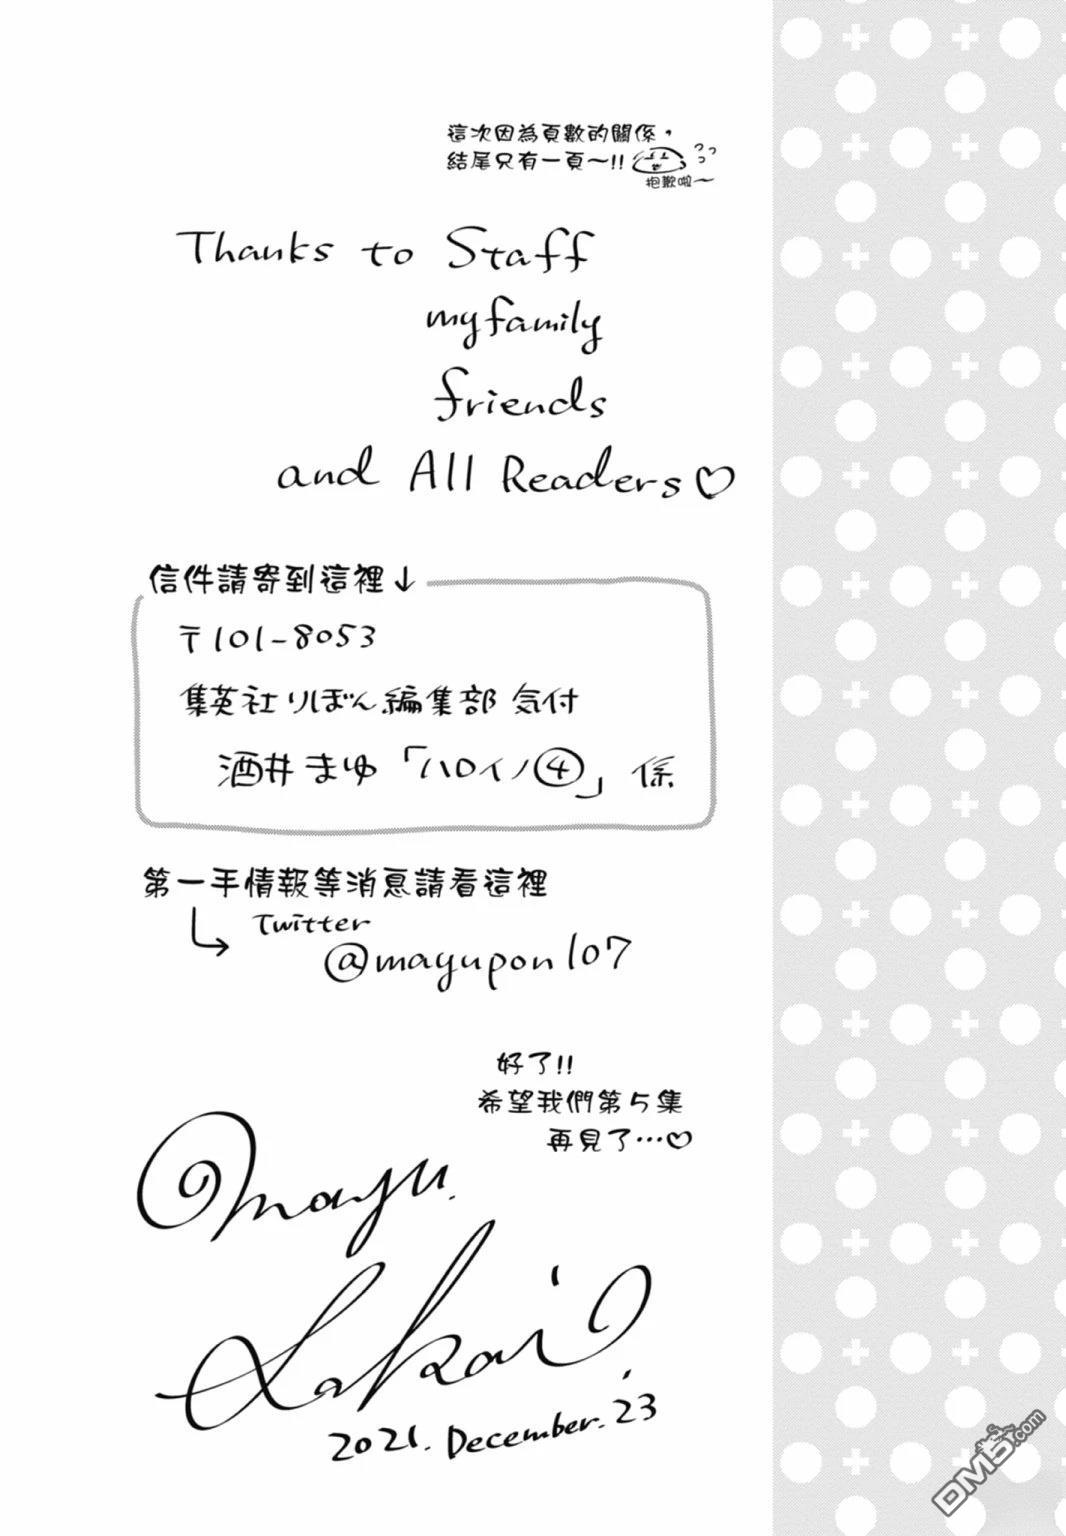 這次因為頁數的關係，
結尾只有一頁～!!
抱歉啦～
Thanks to Staff
my family
friends
and All Readers♡
信件請寄到這裡↓
〒101-8053
集英社 りぼん編集部 気付
酒井まゆ「ハロイノ④」係
第一手情報等消息請看這裡
Twitter
@mayupon107
好了!!
希望我們第5集
再見了…♡
mayu.
Sakai
2021. December. 23
DM5.com